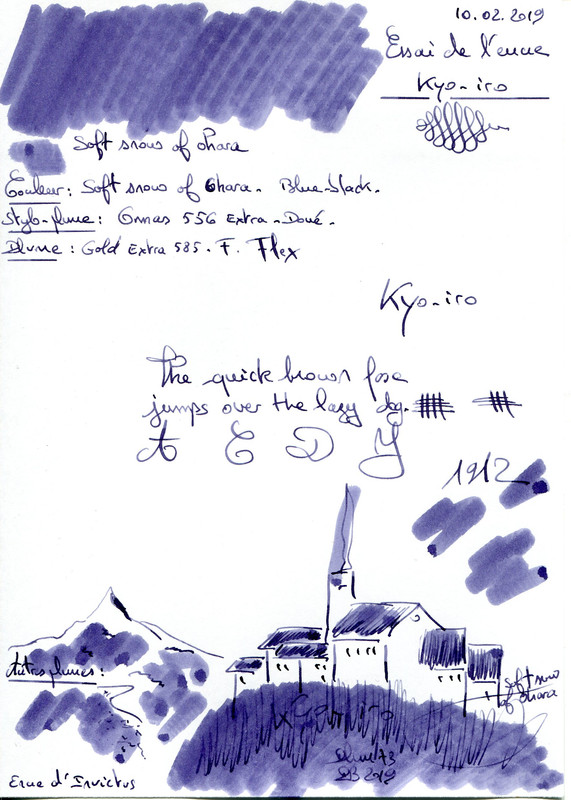 10.02.2019
Essai de l'encre
Kyo-iro
Soft snow of Ohara
Couleur : Soft snow of Ohara - Blue-black.
Stylo-plume : Omas 556 Extra - Doué.
Plume : Gold Extra 585. F. Flex
Kyo-iro
The quick brown fox
jumps over the lazy dog.
A E D Y
1912
Autres plumes :
Soft snow
of Ohara
Plume73
2019
Encre d'Invictus